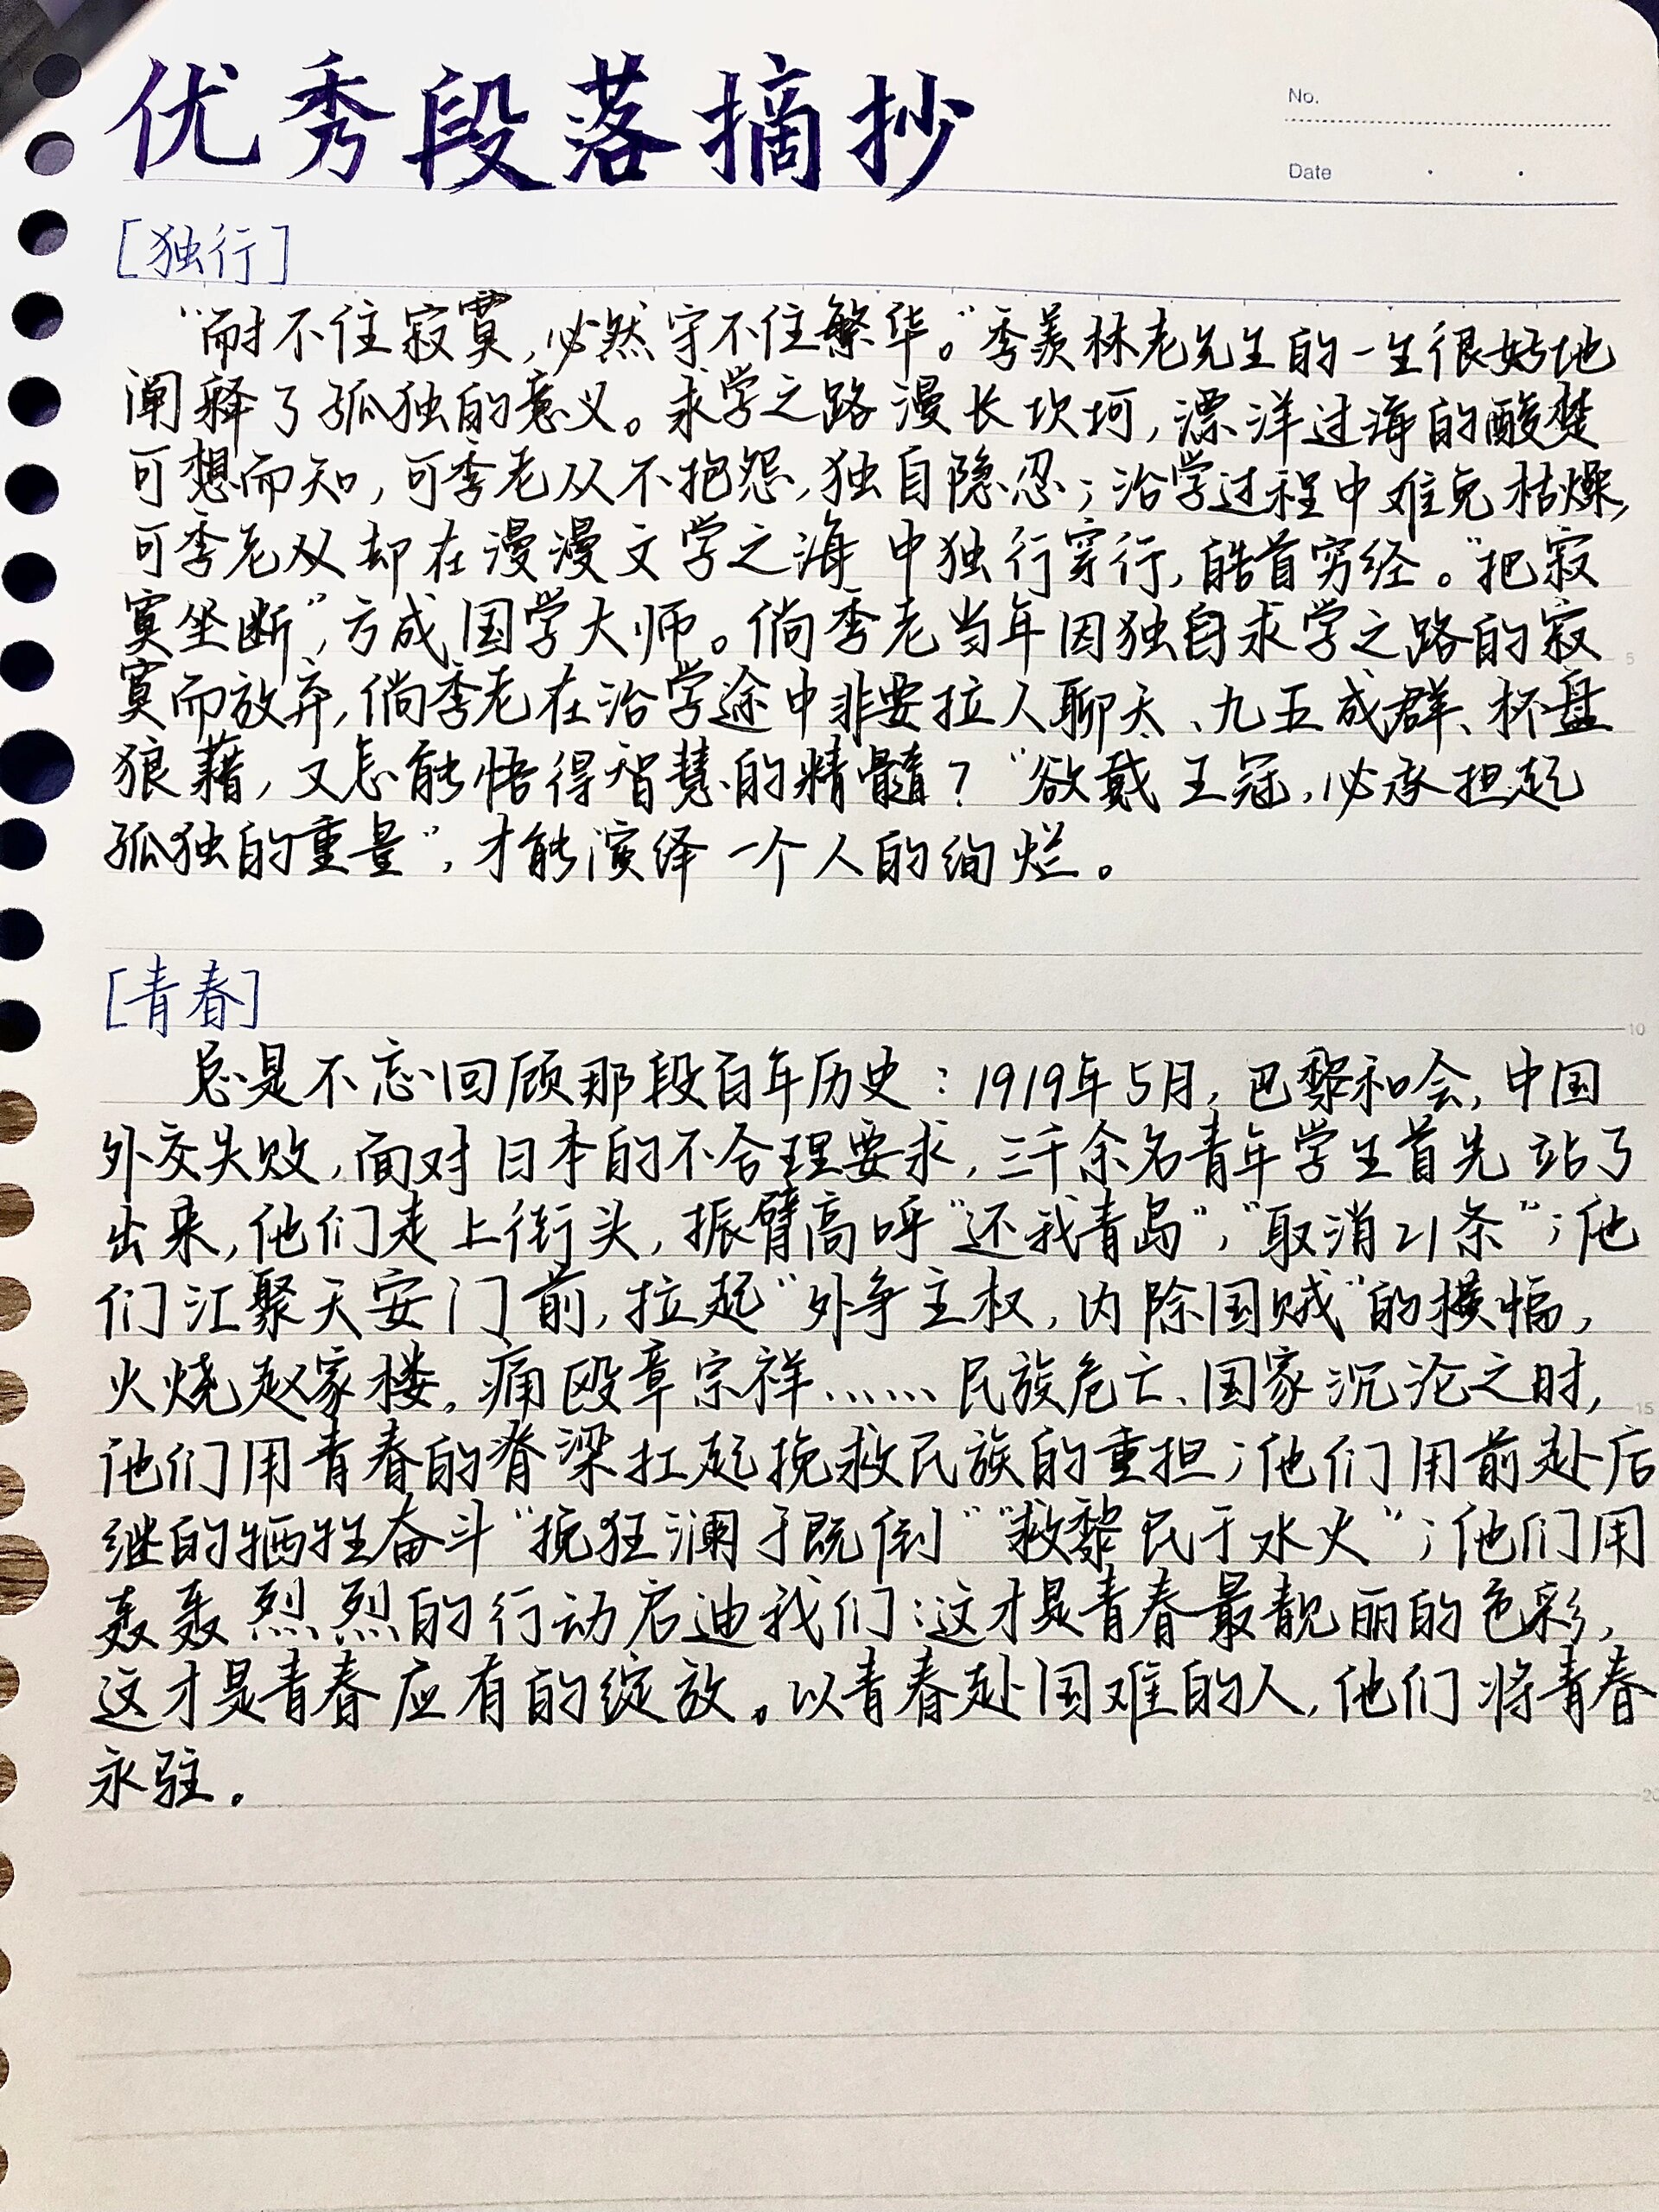 优秀段落摘抄
No.
Date
[独行]
“耐不住寂寞，必然守不住繁华。”季羡林老先生的一生很好地
阐释了孤独的意义。求学之路漫长坎坷，漂洋过海的酸楚
可想而知，可季老从不抱怨，独自隐忍；治学过程中难免枯燥，
可季老从却在漫漫文学之海中独行穿行，皓首穷经。“把寂
寞坐断”，方成国学大师。倘季老当年因独自求学之路的寂
寞而放弃，倘季老在治学途中非要拉人聊天、九五成群、杯盘
狼藉，又怎能悟得智慧的精髓？“欲戴王冠，必承担起
孤独的重量”，才能演绎一个人的绚烂。
5
[青春]
10
总是不忘回顾那段百年历史：1919年5月，巴黎和会，中国
外交失败，面对日本的不合理要求，三千余名青年学生首先站了
出来，他们走上街头，振臂高呼“还我青岛”，“取消21条”；他
们汇聚天安门前，拉起“外争主权，内除国贼”的横幅，
火烧赵家楼，痛殴章宗祥……民族危亡、国家沉沦之时，
15
他们用青春的脊梁扛起挽救民族的重担；他们用前赴后
继的牺牲奋斗“挽狂澜于既倒”“救黎民于水火”；他们用
轰轰烈烈的行动启迪我们：这才是青春最靓丽的色彩，
这才是青春应有的绽放。以青春赴国难的人，他们将青春
永驻。
20